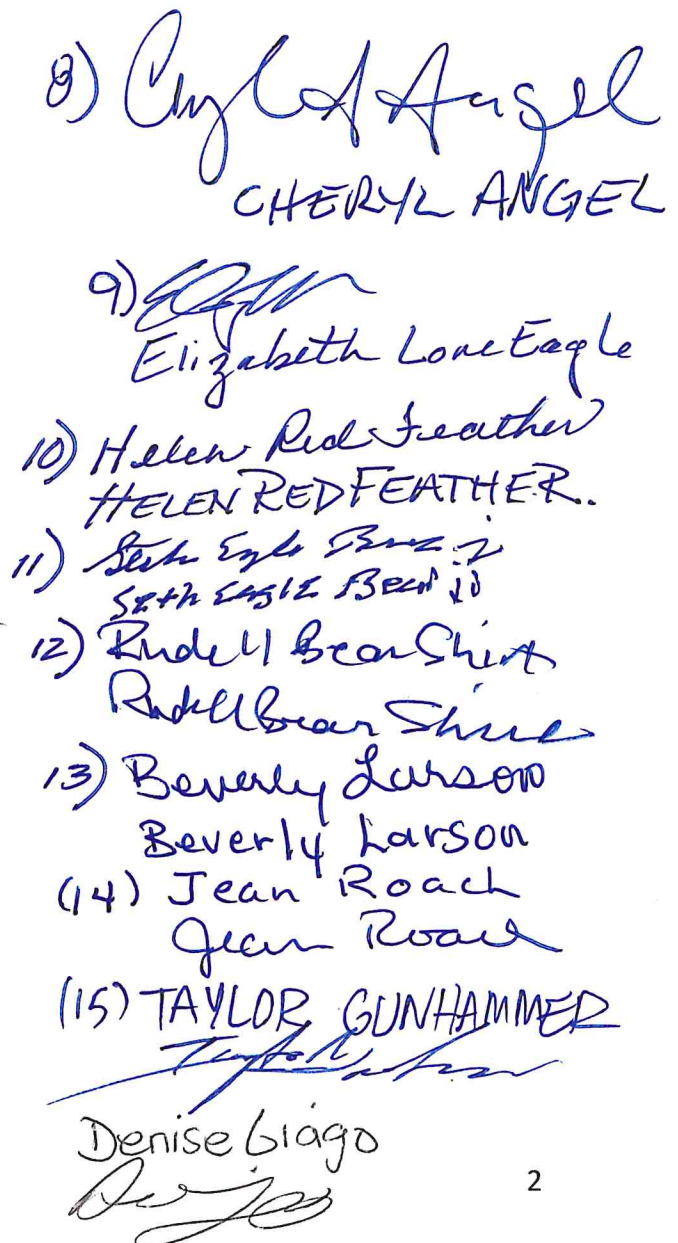 8) Cheryl A Angel
CHERYL ANGEL
9)
Elizabeth Lone Eagle
10) Helen Red Feather
HELEN RED FEATHER.
11) Seth Eagle Bear Jr
Seth Eagle Bear Jr
12) Rudell Bear Shirt
Rudell Bear Shirt
13) Beverly Larson
Beverly Larson
(14) Jean Roach
Jean Roach
(15) TAYLOR GUNHAMMER
Denise Giago
2